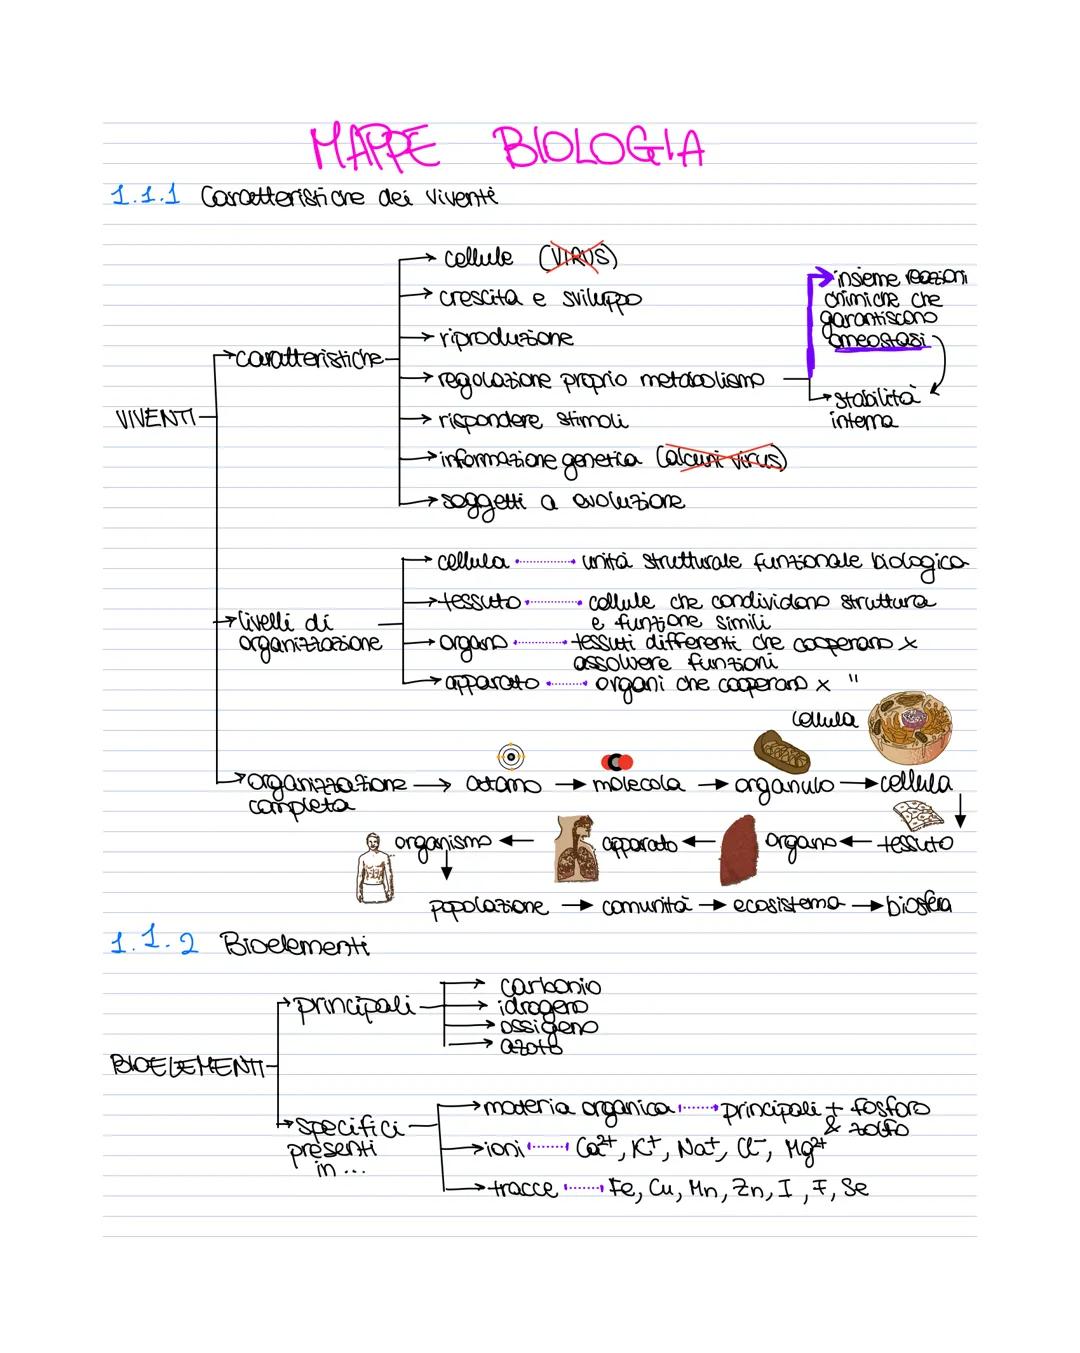 MAPPE BIOLOGIA
1.1.1 Caratteristiche dei viventi
VIVENTI
caratteristiche
cellule (VIRUS)
crescita e sviluppo
riproduzione
regolazione proprio metabolismo
insieme reazioni
chimiche che
garantiscono
omeostasi
stabilità
interna
rispondere stimoli
informazione genetica (alcuni virus)
soggetti a evoluzione
livelli di
organizzazione
cellula unità strutturale funzionale biologica
tessuto cellule che condividono struttura
e funzione simili
organo tessuti differenti che cooperano x
assolvere funzioni
apparato organi che cooperano x "
cellula
organizzazione
completa
→ atomo → molecola → organulo → cellula
organismo ← apparato ← organo ← tessuto
popolazione → comunità → ecosistema → biosfera
1.1.2 Bioelementi
BIOELEMENTI
principali
carbonio
idrogeno
ossigeno
azoto
specifici
presenti
in ...
materia organica principali + fosforo
& zolfo
ioni Ca²⁺, K⁺, Na⁺, Cl⁻, Mg²⁺
tracce Fe, Cu, Mn, Zn, I, F, Se